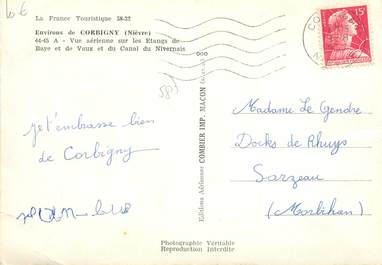 6 €
La France Touristique 58-22
Environs de CORBIGNY (Nièvre)
44-45 A - Vue aérienne sur les Etangs de
Baye et de Vaux et du Canal du Nivernais
Je t'embrasse bien
de Corbigny
Editions Aériennes COMBIER IMP. MACON
15F
Madame Le Gendre
Docks de Rhuys
Sarzeau
(Morbihan)
Photographie Véritable
Reproduction Interdite